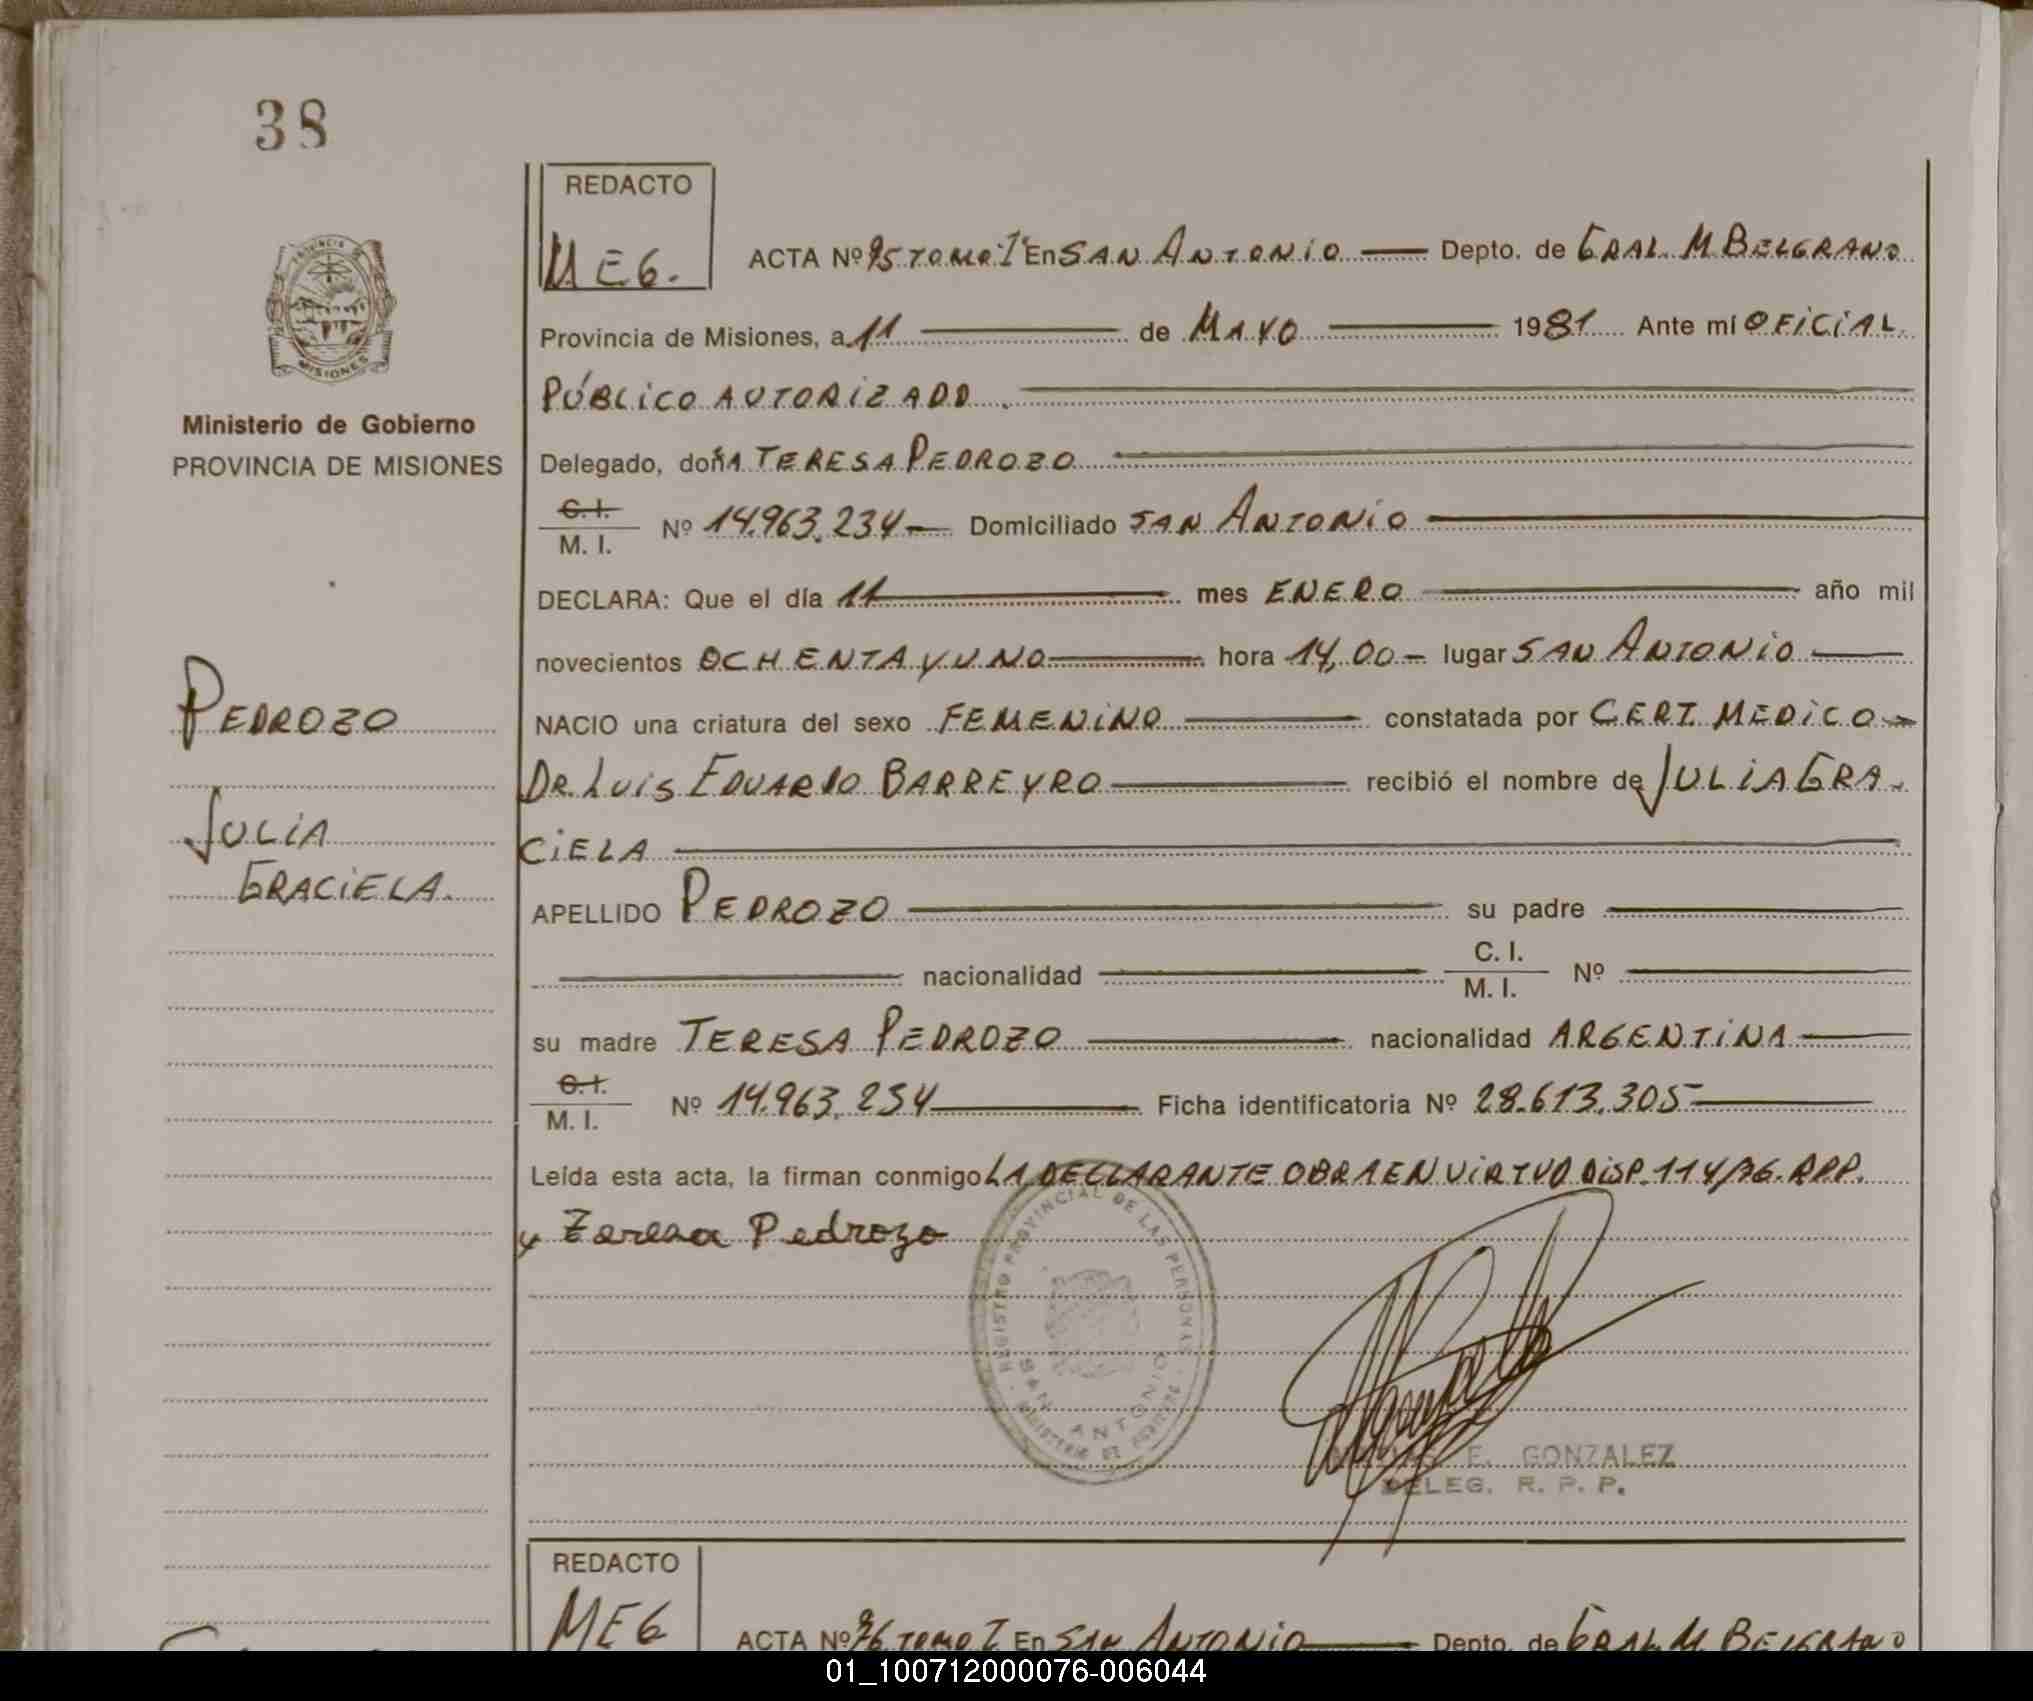 38
REDACTO
MEG.
ACTA Nº 95 TOMO I En SAN ANTONIO Depto. de GRAL. M. BELGRANO
Provincia de Misiones, a 11 de MAYO 1981 Ante mí OFICIAL
PÚBLICO AUTORIZADO.
Delegado, doñA TERESA PEDROZO
C. I.
M. I. Nº 14.963.234 Domiciliado SAN ANTONIO
DECLARA: Que el día 11 mes ENERO año mil
novecientos OCHENTA y UNO hora 14,00 lugar SAN ANTONIO
NACIO una criatura del sexo FEMENINO constatada por CERT. MEDICO
DR. LUIS EDUARDO BARREYRO recibió el nombre de JULIA GRA-
CIELA
APELLIDO PEDROZO su padre
nacionalidad C. I. M. I. Nº
su madre TERESA PEDROZO nacionalidad ARGENTINA
C. I.
M. I. Nº 14.963.234 Ficha identificatoria Nº 28.613.305
Leída esta acta, la firman conmigo LA DECLARANTE OBRA EN VIRTUD DISP. 114/76. RPP.
y Teresa Pedrozo
PROVINCIA MISIONES
Ministerio de Gobierno
PROVINCIA DE MISIONES
PEDROZO
JULIA
GRACIELA.
REGISTRO PROVINCIAL DE LAS PERSONAS
SAN ANTONIO
E. GONZALEZ
DELEG. R. P. P.
REDACTO
MEG
ACTA Nº 96 TOMO I En SAN ANTONIO Depto. de GRAL. M. BELGRANO
01_100712000076-006044